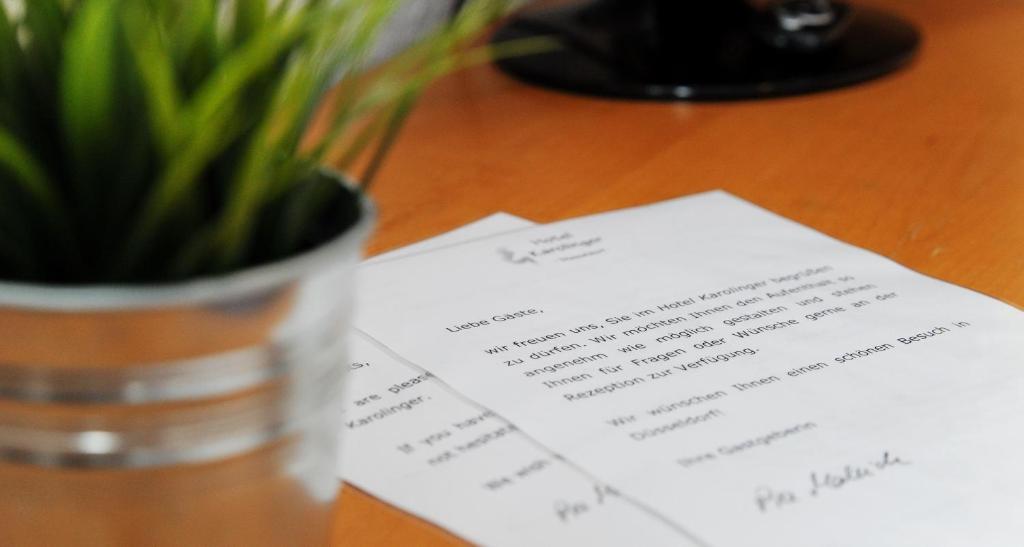 Hotel
Karolinger
Liebe Gäste,
wir freuen uns, Sie im Hotel Karolinger begrüßen
zu dürfen. Wir möchten Ihnen den Aufenthalt so
angenehm wie möglich gestalten und stehen
Ihnen für Fragen oder Wünsche gerne an der
Rezeption zur Verfügung.
Wir wünschen Ihnen einen schönen Besuch in
Düsseldorf!
Ihre Gastgeberin
are please
Karolinger.
If you have
not hesitate
We wish